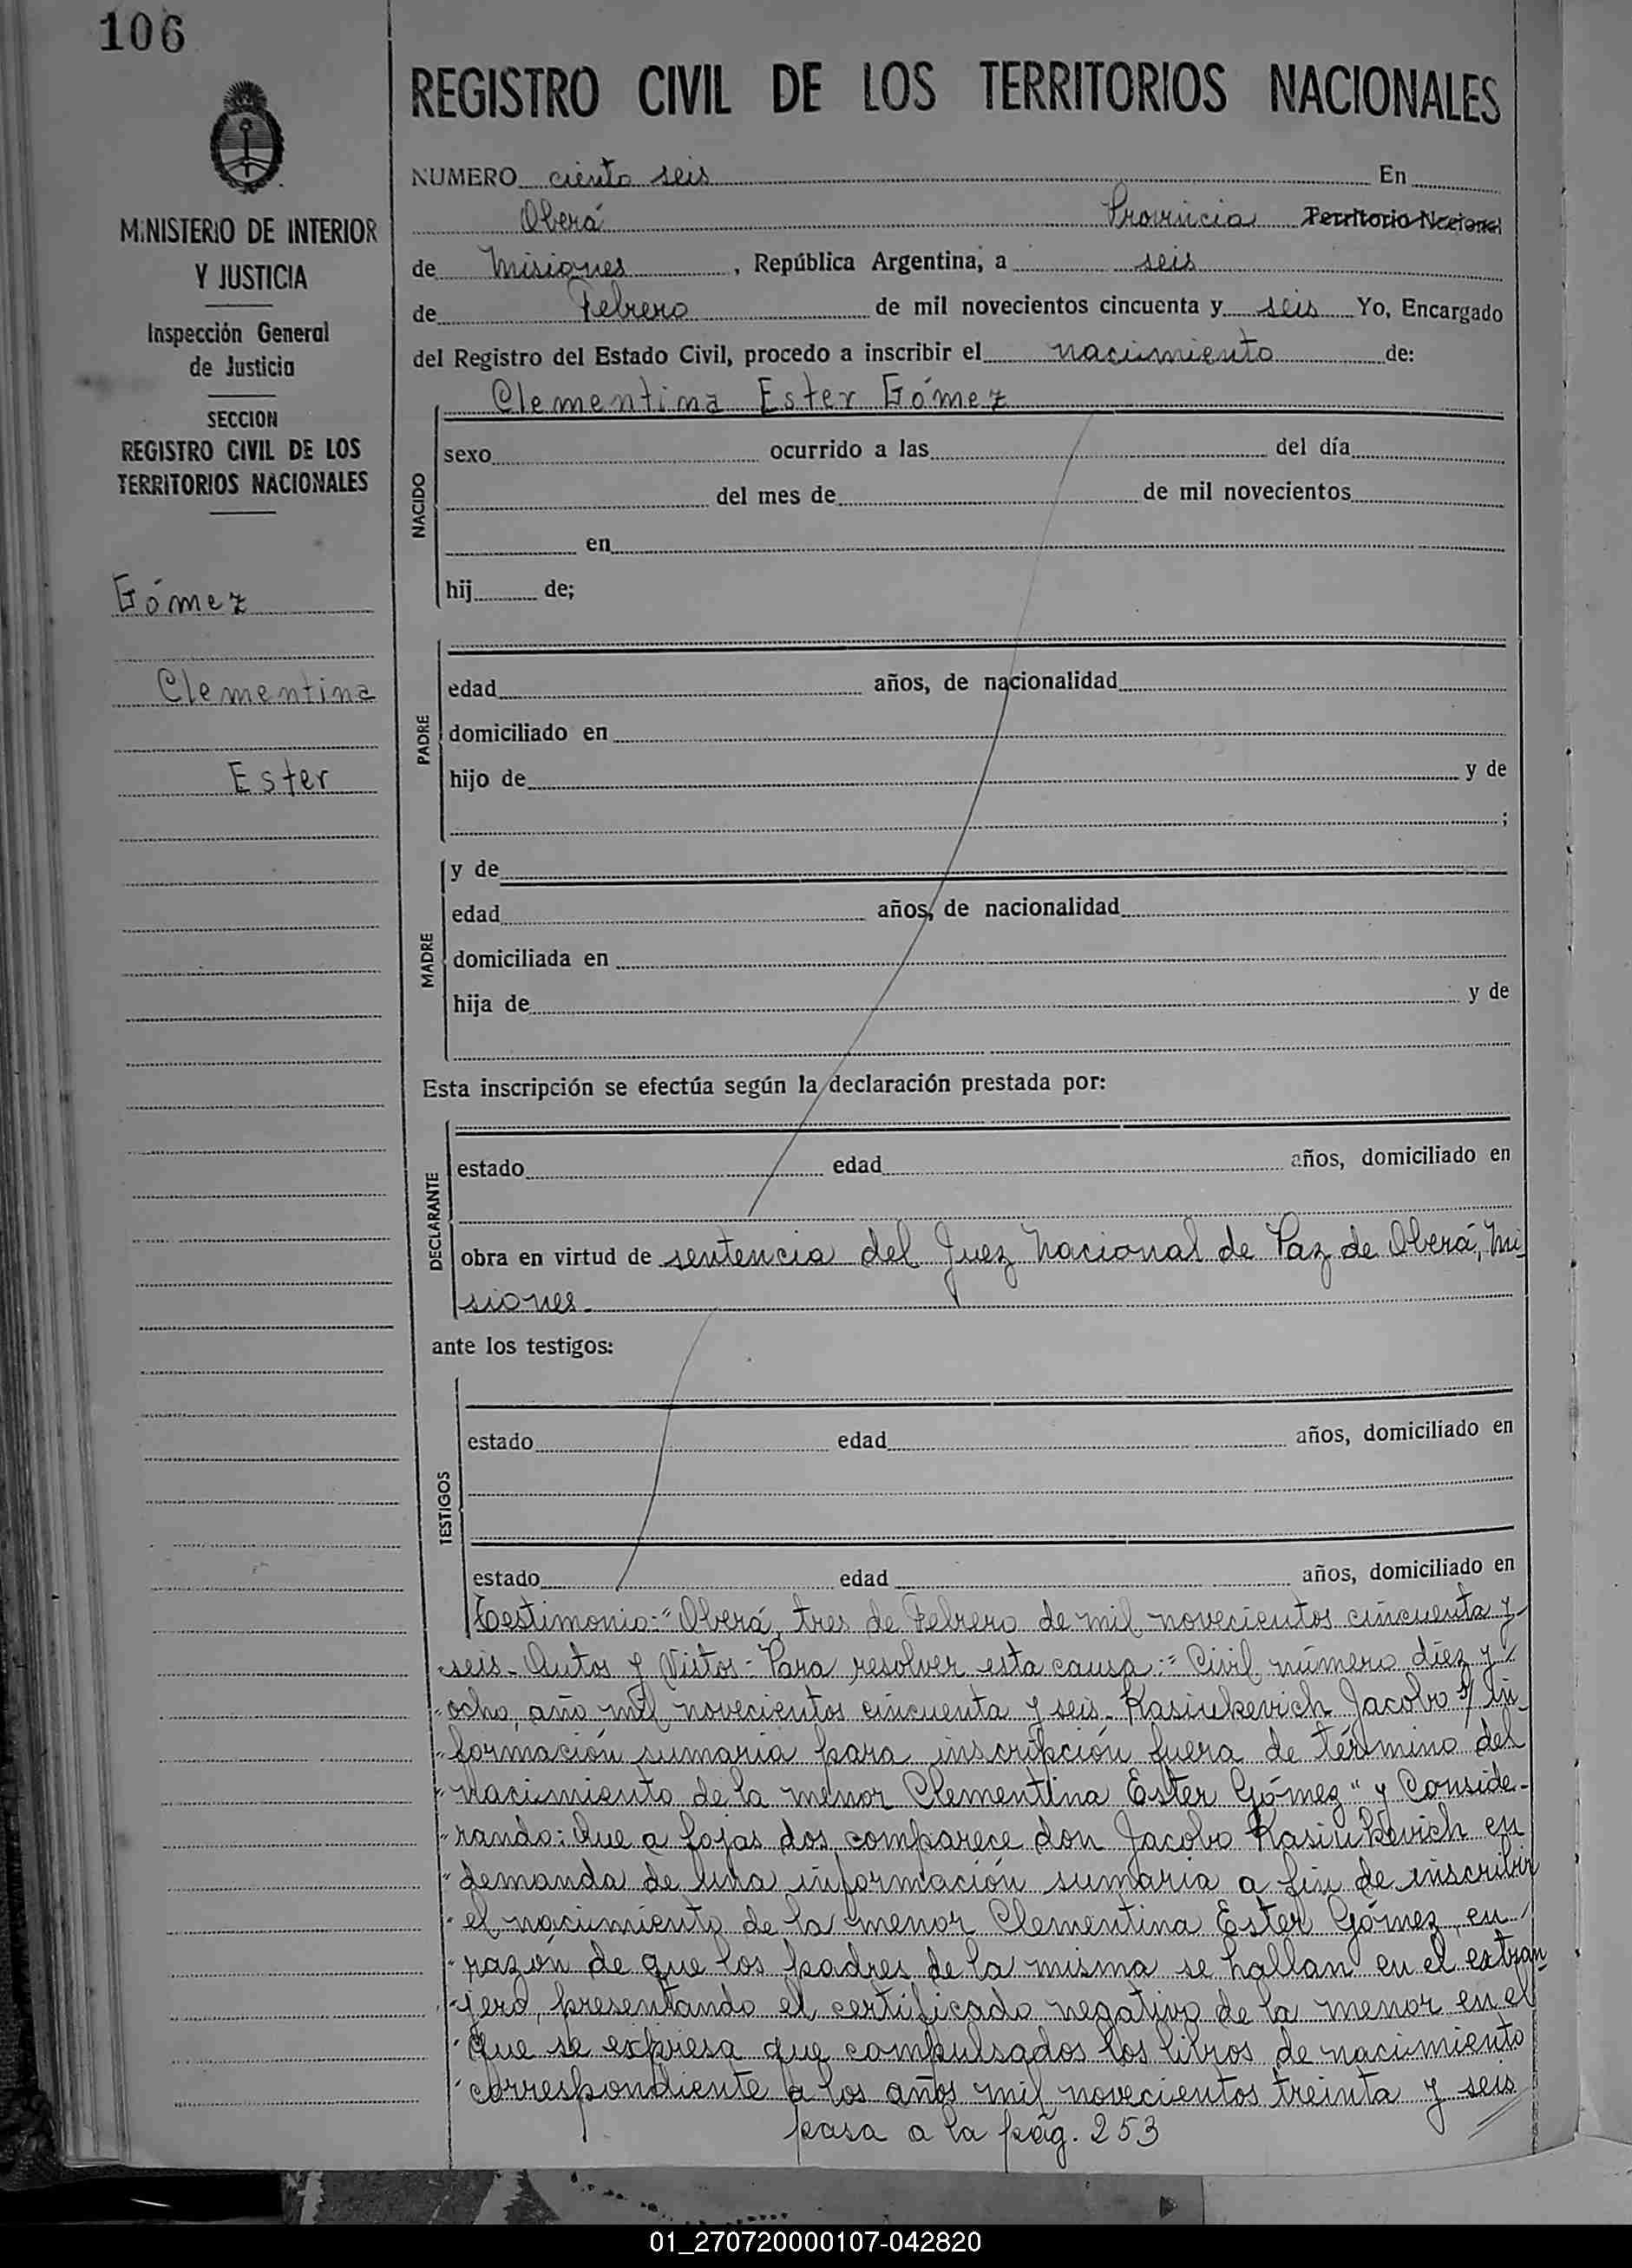 106
REGISTRO CIVIL DE LOS TERRITORIOS NACIONALES
MINISTERIO DE INTERIOR
Y JUSTICIA
Inspección General
de Justicia
SECCION
REGISTRO CIVIL DE LOS
TERRITORIOS NACIONALES
Gómez
Clementina
Ester
NUMERO ciento seis En
Oberá Provincia Territorio Nacional
de Misiones, República Argentina, a seis
de Febrero de mil novecientos cincuenta y seis Yo, Encargado
del Registro del Estado Civil, procedo a inscribir el nacimiento de:
Clementina Ester Gómez
NACIDO
sexo ocurrido a las del día
del mes de de mil novecientos
en
hij de;
PADRE
edad años, de nacionalidad
domiciliado en
hijo de y de
;
MADRE
y de
edad años, de nacionalidad
domiciliada en
hija de y de
Esta inscripción se efectúa según la declaración prestada por:
DECLARANTE
estado edad años, domiciliado en
obra en virtud de sentencia del Juez Nacional de Paz de Oberá, Mi
siones.
ante los testigos:
TESTIGOS
estado edad años, domiciliado en
estado edad años, domiciliado en
Testimonio: "Oberá, tres de Febrero de mil novecientos cincuenta y
seis - Autos y Vistos - Para resolver esta causa: "Civil número diez y
"ocho, año mil novecientos cincuenta y seis - Kasiukevich Jacobo s/ in-
"formación sumaria para inscripción fuera de término del
"nacimiento de la menor Clementina Ester Gómez" y Conside-
"rando: Que a fojas dos comparece don Jacobo Kasiukevich en
"demanda de una información sumaria a fin de inscribir
"el nacimiento de la menor Clementina Ester Gómez, en
"razón de que los padres de la misma se hallan en el extran
"jero, presentando el certificado negativo de la menor en el
"que se expresa que compulsados los libros de nacimiento
"correspondiente a los años mil novecientos treinta y seis
pasa a la pág. 253
01_270720000107-042820